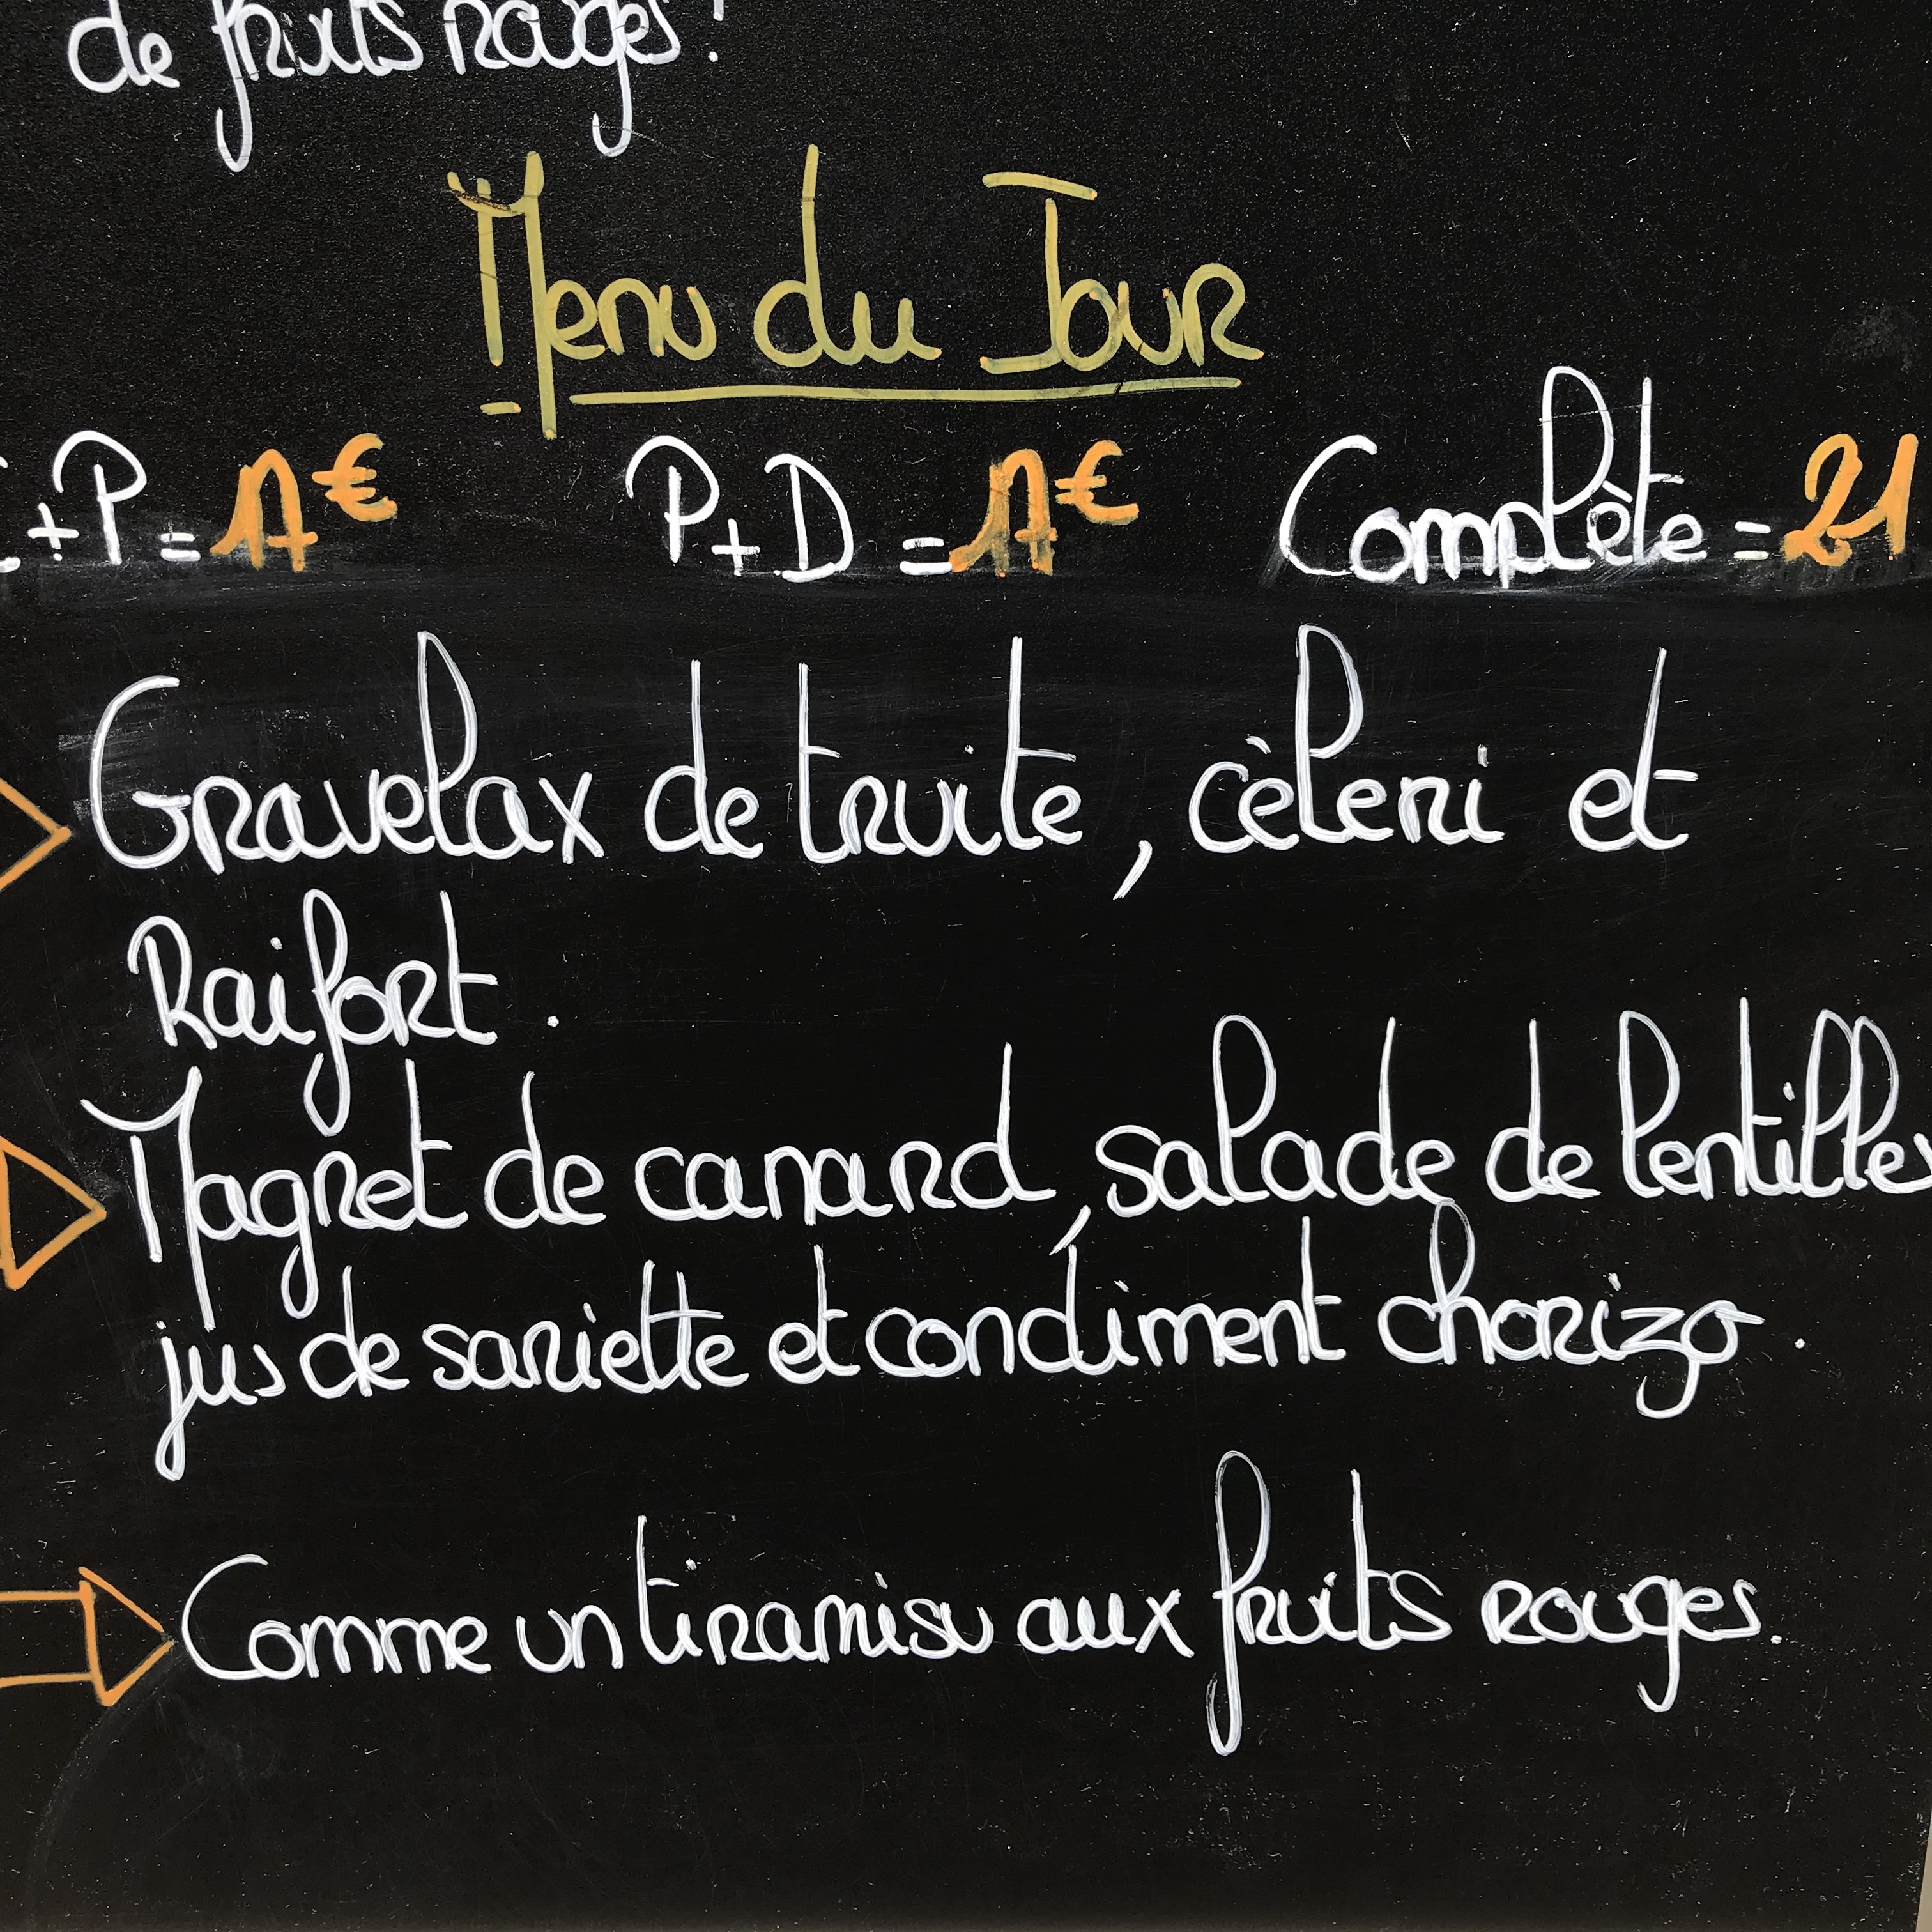 de fruits rouges!
Menu du Jour
+P = 17€ P+D = 17€ Complète = 21
Gravelax de truite, cèleri et
Raifort.
Magret de canard, salade de lentilles
jus de sariette et condiment chorizo.
Comme un tiramisu aux fruits rouges.